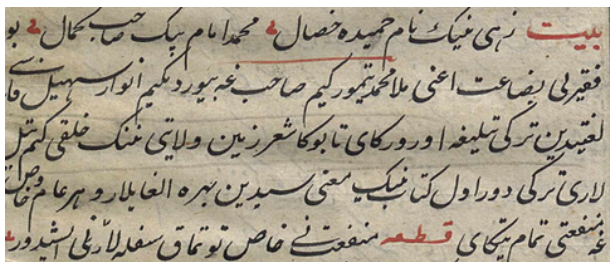 بیت زهی نیک نام حمیده خصال محمد امام بیک صاحب کمال بو
فقیر بی بضاعت اعنی ملا محمد تیمور کیم صاحب غه بیوردیکیم انوار سهیلی فا
لغتیدین ترکی تیلیغه اورورکای تا بو کاشغر زمین ولایتی ننک خلقی کیم تیل
لاری ترکی دور اول کتاب نینک معنی سیدین بهره الغایلار و هر عام خاص
غه منفعتی تمام یتکای قطعه منفعت نی خاص توتماق سفله لارنی ایشیدور